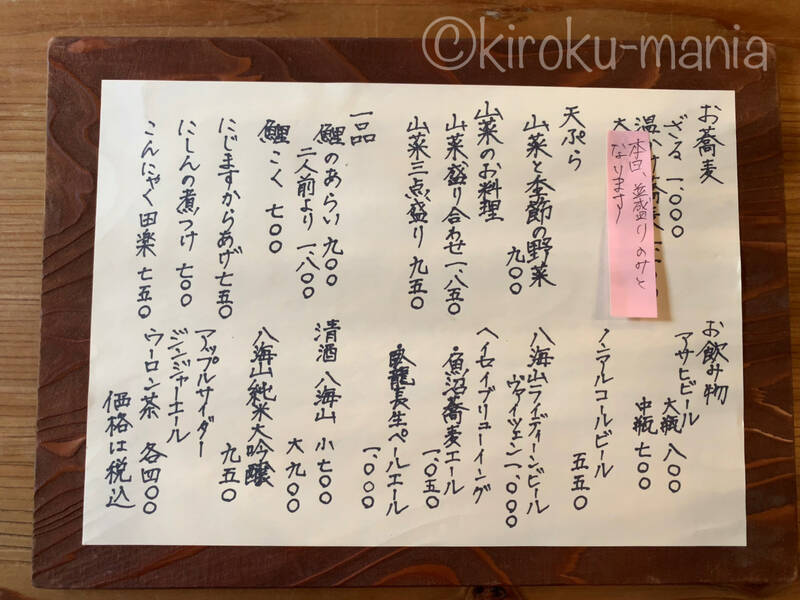 ©kiroku-mania
お蕎麦
ざる 一、〇〇〇
温
大
本日、並盛りのみと
なります!
天ぷら
山菜と季節の野菜
九〇〇
山菜のお料理
山菜盛り合わせ 一、八五〇
山菜三点盛り 九五〇
一品
鯉のあらい 九〇〇
二人前より 一、八〇〇
鯉こく 七〇〇
にじますからあげ 七五〇
にしんの煮つけ 七〇〇
こんにゃく田楽 七五〇
お飲み物
アサヒビール
大瓶 八〇〇
中瓶 七〇〇
ノンアルコールビール
五五〇
八海山ライディーンビール
ヴァイツェン 一、〇〇〇
ヘイセイブリューイング
・魚沼蕎麦エール
一、〇五〇
・臥龍長生ペールエール
一、〇〇〇
清酒 八海山 小 七〇〇
大 九〇〇
八海山純米大吟醸
九五〇
アップルサイダー
ジンジャーエール
ウーロン茶 各四〇〇
価格は税込